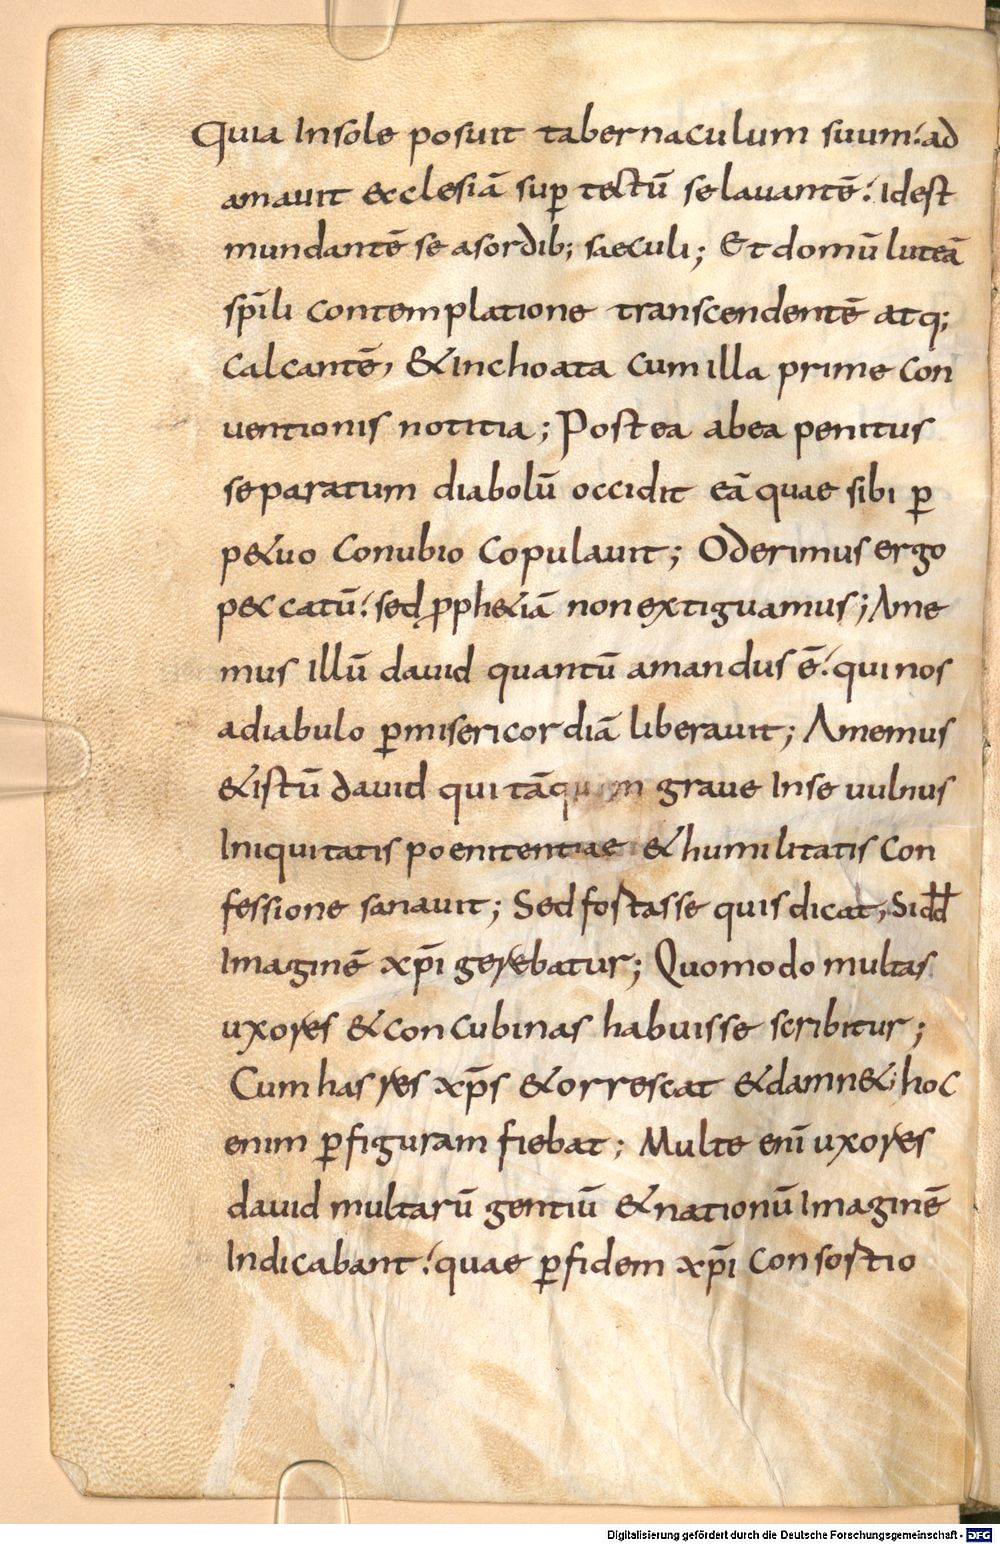 Quia Insole posuit tabernaculum suum: ad
amauit & clesiā sup tectū selauantē: Idest
mundantē se asordib; saeculi; Et domū luteā
sp̄ili contemplatione transcendentē atq;
calcantē, & Inchoata cum illa prime con
uentionis notitia; Postea abea penitus
separatum diabolū occidit eā quae sibi ꝑ
p&uo conubio copulauit; Oderimus ergo
peccatū: sed ꝓph&iā non extiguamus; Ame
mus Illū dauid quantū amandus ē: qui nos
adiabulo ꝑmisericordiā liberauit; Amemus
& istū dauid qui tāquam graue Inse uulnus
Iniquitatis poenitentiae & humilitatis con
fessione sanauit; Sed fostasse quis dicat, Si dd
Imaginē xp̄i gerebatur; Quomodo multas
uxores & concubinas habuisse scribitur;
Cum has res xp̄s & orrescat & damn&; hoc
enim ꝑ figuram fiebat; Multe enī uxores
dauid multarū gentiū & nationū Imaginē
Indicabant: quae ꝑ fidem xp̄i consostio
Digitalisierung gefördert durch die Deutsche Forschungsgemeinschaft - DFG